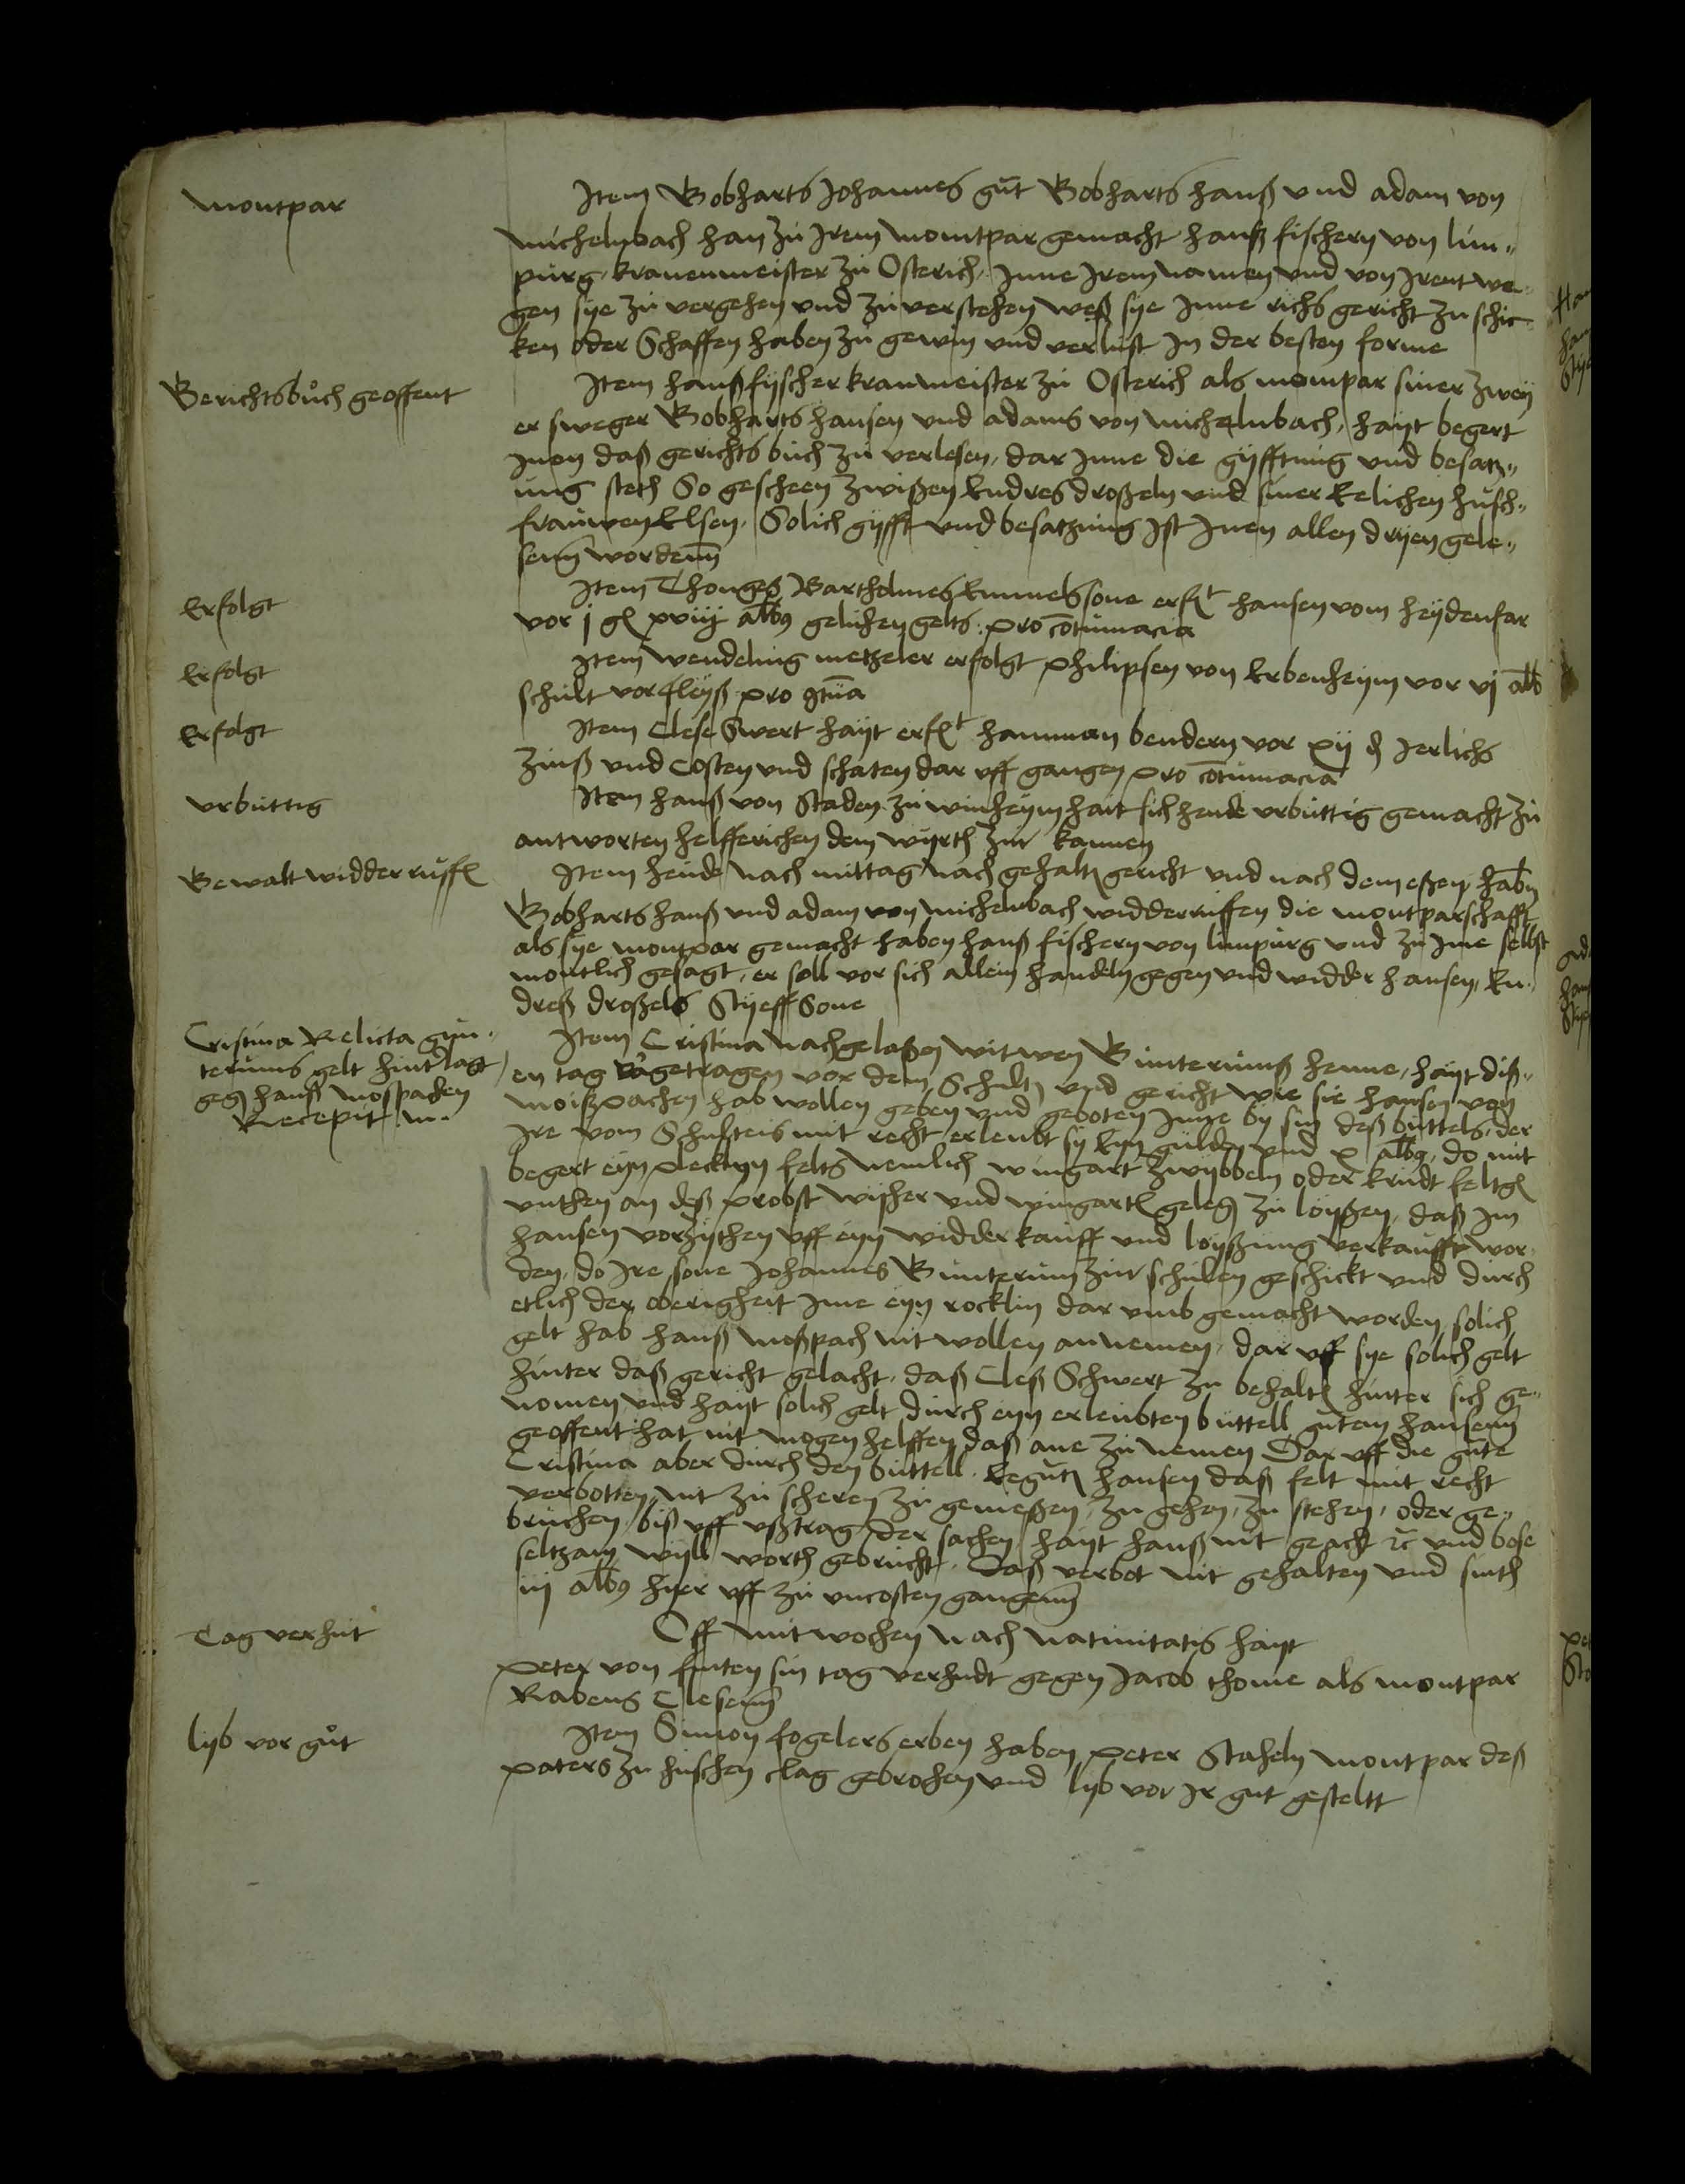 montpar
Item Bobharts Johannes gut Bobharts hanß vnd adam von
michelnbach han zu Irem montpar gemacht hanß fischern von lim„
purg, kranenmeister zu Osterich, Inne Irem namen vnd von Irent we„
gen sye zu vergehen vnd zuverstehen weß sye Inne richs gericht zu schic„
ken oder Schaffen haben zu gewin vnd verlust In der besten forme
Gerichtsbuch geoffent
Item hanß fyscher kranmeister zu Osterich als mompar siner zwey
er sweger Bobharts hansen vnd adams von michelnbach, hayt begert
Inen daß gerichts buch zu verlesen, dar Inne die gyfftung vnd besatz„
ung steth So gescheen zwißen Endres droßeln vnd siner Eelichen husch„
frauwen Elsen, Solich gyfft vnd besatzung Ist Inen allen dryen gele„
senn wordenn
Erfolgt
Item Thonges Bartholmes Emmels sone erf̄t hansen vom heydenfar
vor j gl xviij alb9 geluhen gelts pro cōtumacia
Erfolgt
Item wendeling metzeler erfolgt philipsen von Erbenheym vor vj alb
schult vor fleyß pro 9tūa
Erfolgt
Item Clese Swert hayt erf̄t hamman bendern vor xij ₰ Jerlichs
zinß vnd Costen vnd schaten dar vff gangen pro cōtumacia
vrbuttig
Item hanß von Staden zu winheym hait sich heude vrbuttig gemacht zu
antworten helfferichen dem wyrth zur kannen
Gewalt widder ruff
Item heude nach mittag nach gehaltē gericht vnd nach dem eßen habn
Bobharts hanß vnd adam von michelnbach widderruffen die montparschafft
als sye montpar gemacht haben hanß fischern von limpurg vnd zu Ime selbst
montlich gesagt, er soll vor sich allein handeln gegen vnd widder hansen, En„
dreß droßels Styeff Sone
Cristina Relicta gun„
terums gelt hintlagt
gegē hanß moßpachen
Recepit
Item Cristina nachgelaßen witwen Gunterumß henne, hayt diß„
en tag vorgetragen vor dem Schultē vnd gericht wie sie hansen von
moißpachen hab wollen geben vnd geboten Inne by sin deß buttels, der
Ire vom Schulteis mit recht erleubt sy Eyn gulden vnd x alb9, do mit
begert eyn plecklyn felts nemlich wingart zwybbeln oder krudt feltgl
vnthen an deß probst wyher vnd wingartē gelegē zu loyßen, daß Im
hansen vorzythen vff eyn widder kauff vnd loyßung verkaufft wor„
den, do Ire sone Johannes Gunterum zur schulen geschickt vnd durch
etlich der oberigheit Ime eyn rocklin dar vmb gemacht worden, solich
gelt hab hanß moßpach nit wollen annemen, dar vff sye solich gelt
hinter daß gericht gelacht, daß Cleß Schwert zu behaltē hinter sich ge„
nomen vnd hayt solich gelt durch eyn erleubten buttell gutem hansenn
geoffent hat nit mogen helffen daß ane zu nemen Dar vff die gute
Cristina aber durch den buttell. hansen daß felt mit recht
verbotten nit zu scheren zu genießen, zu gehen, zu stehen, oder ge„
bruchen, biß vff vßtrag der sachen hayt hanß nit geacht ꝛc vnd bose
seltzam wyll worth gebrucht. Daß verbot nit gehalten vnd sinth
iij alb9 hier vff zu vncosten gangenn
Tag verhut
Off mitwochen nach natiuitatis hayt
peter von sin tag verhudt gegen Jacob thome als montpar
Rabens Clesenn
lyb vor gut
Item Simon fogelers erben haben peter Staheln montpar deß
paters zu huschen clag gebrochen vnd lyb vor Ir gut gesteltt